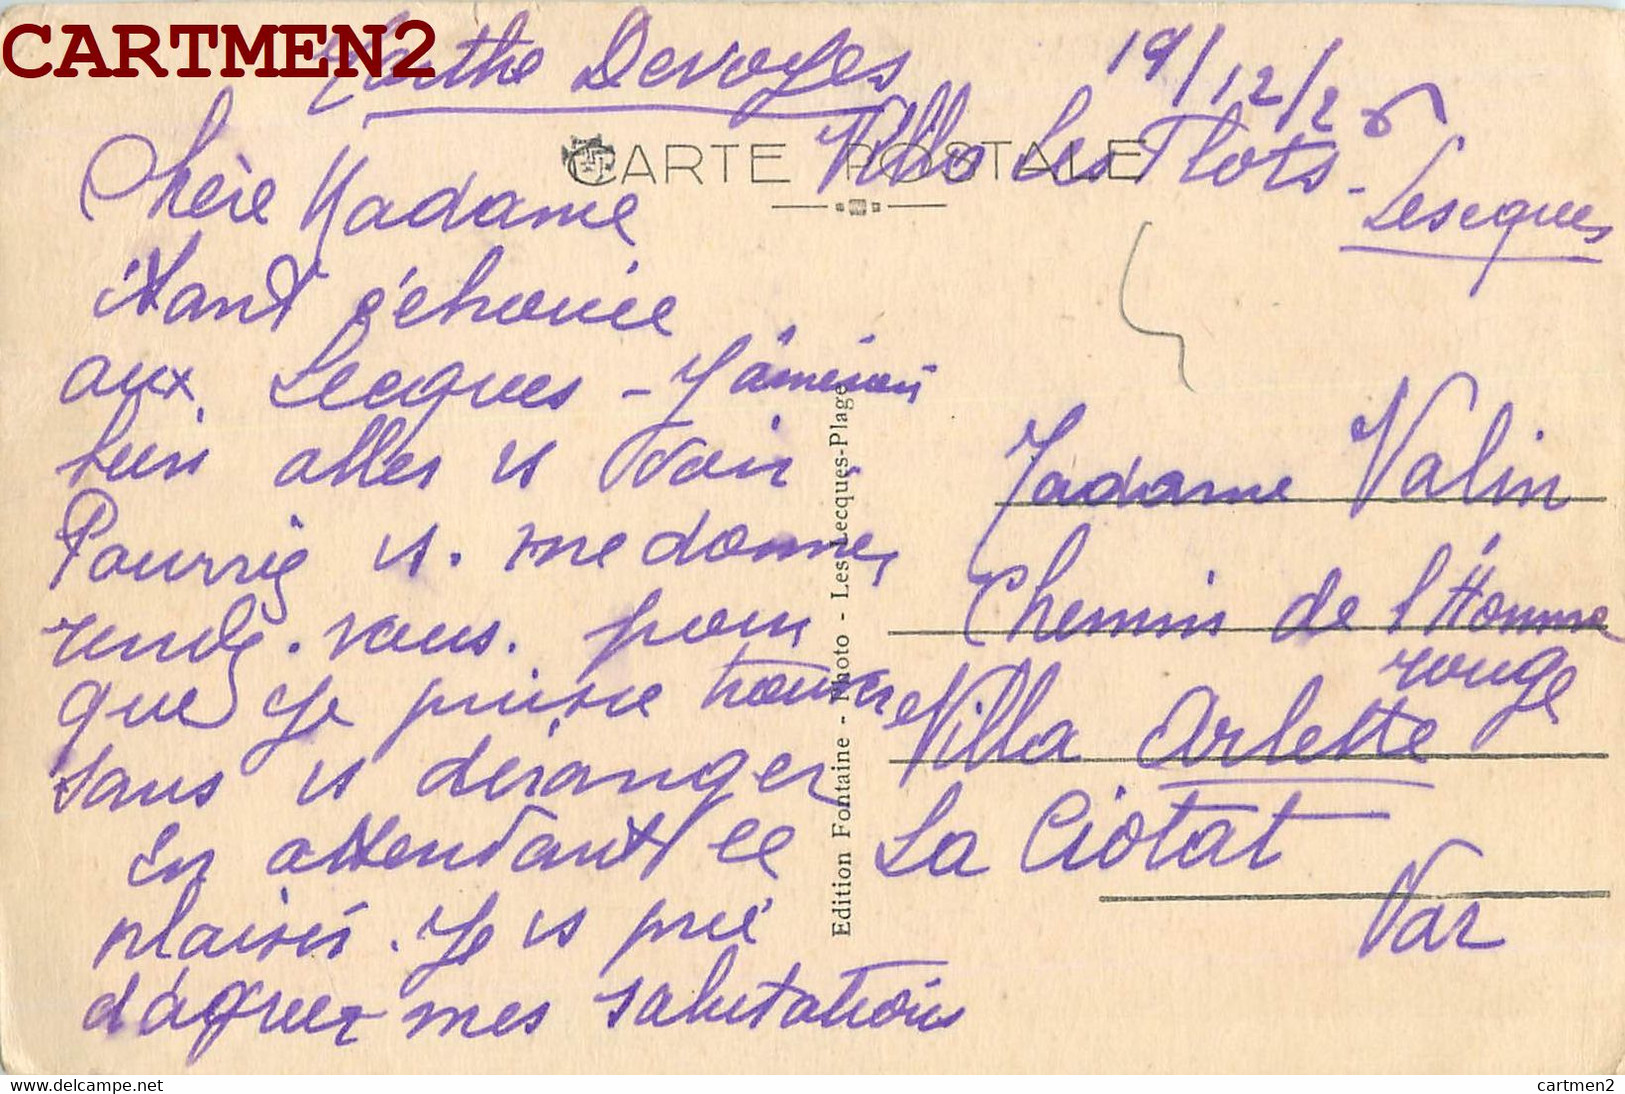 CARTMEN2
Marthe Devoyes
19/12/26
Villa Les Flots - Lesques
CARTE POSTALE
Chère Madame
étant échouée
aux Lecques - J'aimerais
bien aller vs voir.
Pourriez vs. me donner
rendez-vous. pour
que je puisse trouver
sans vs déranger
En attendant ce
plaisir. Je vs prie
d'agréer mes salutations
Edition Fontaine - Photo - Les Lecques-Plage
Madame Valin
Chemin de l'Homme
rouge
Villa Arlette
La Ciotat
Var
www.delcampe.net
cartmen2